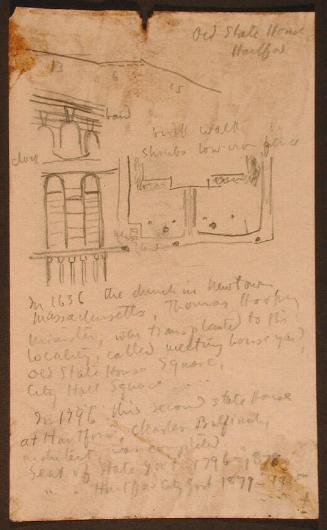 Old State House
Hartford
13
6
15
band
brick walk
shrubs low iron fence
close
In 1636 the church in Newtown,
Massachusetts, Thomas Hooker
minister, was transplanted to this
locality, called meeting house yard,
Old State House Square,
City Hall Square
In 1796 this second state house
at Hartford, Charles Bulfinch,
architect, was completed
Seat of State Govt 1796-1878
" " Hartford City Govt 1879-